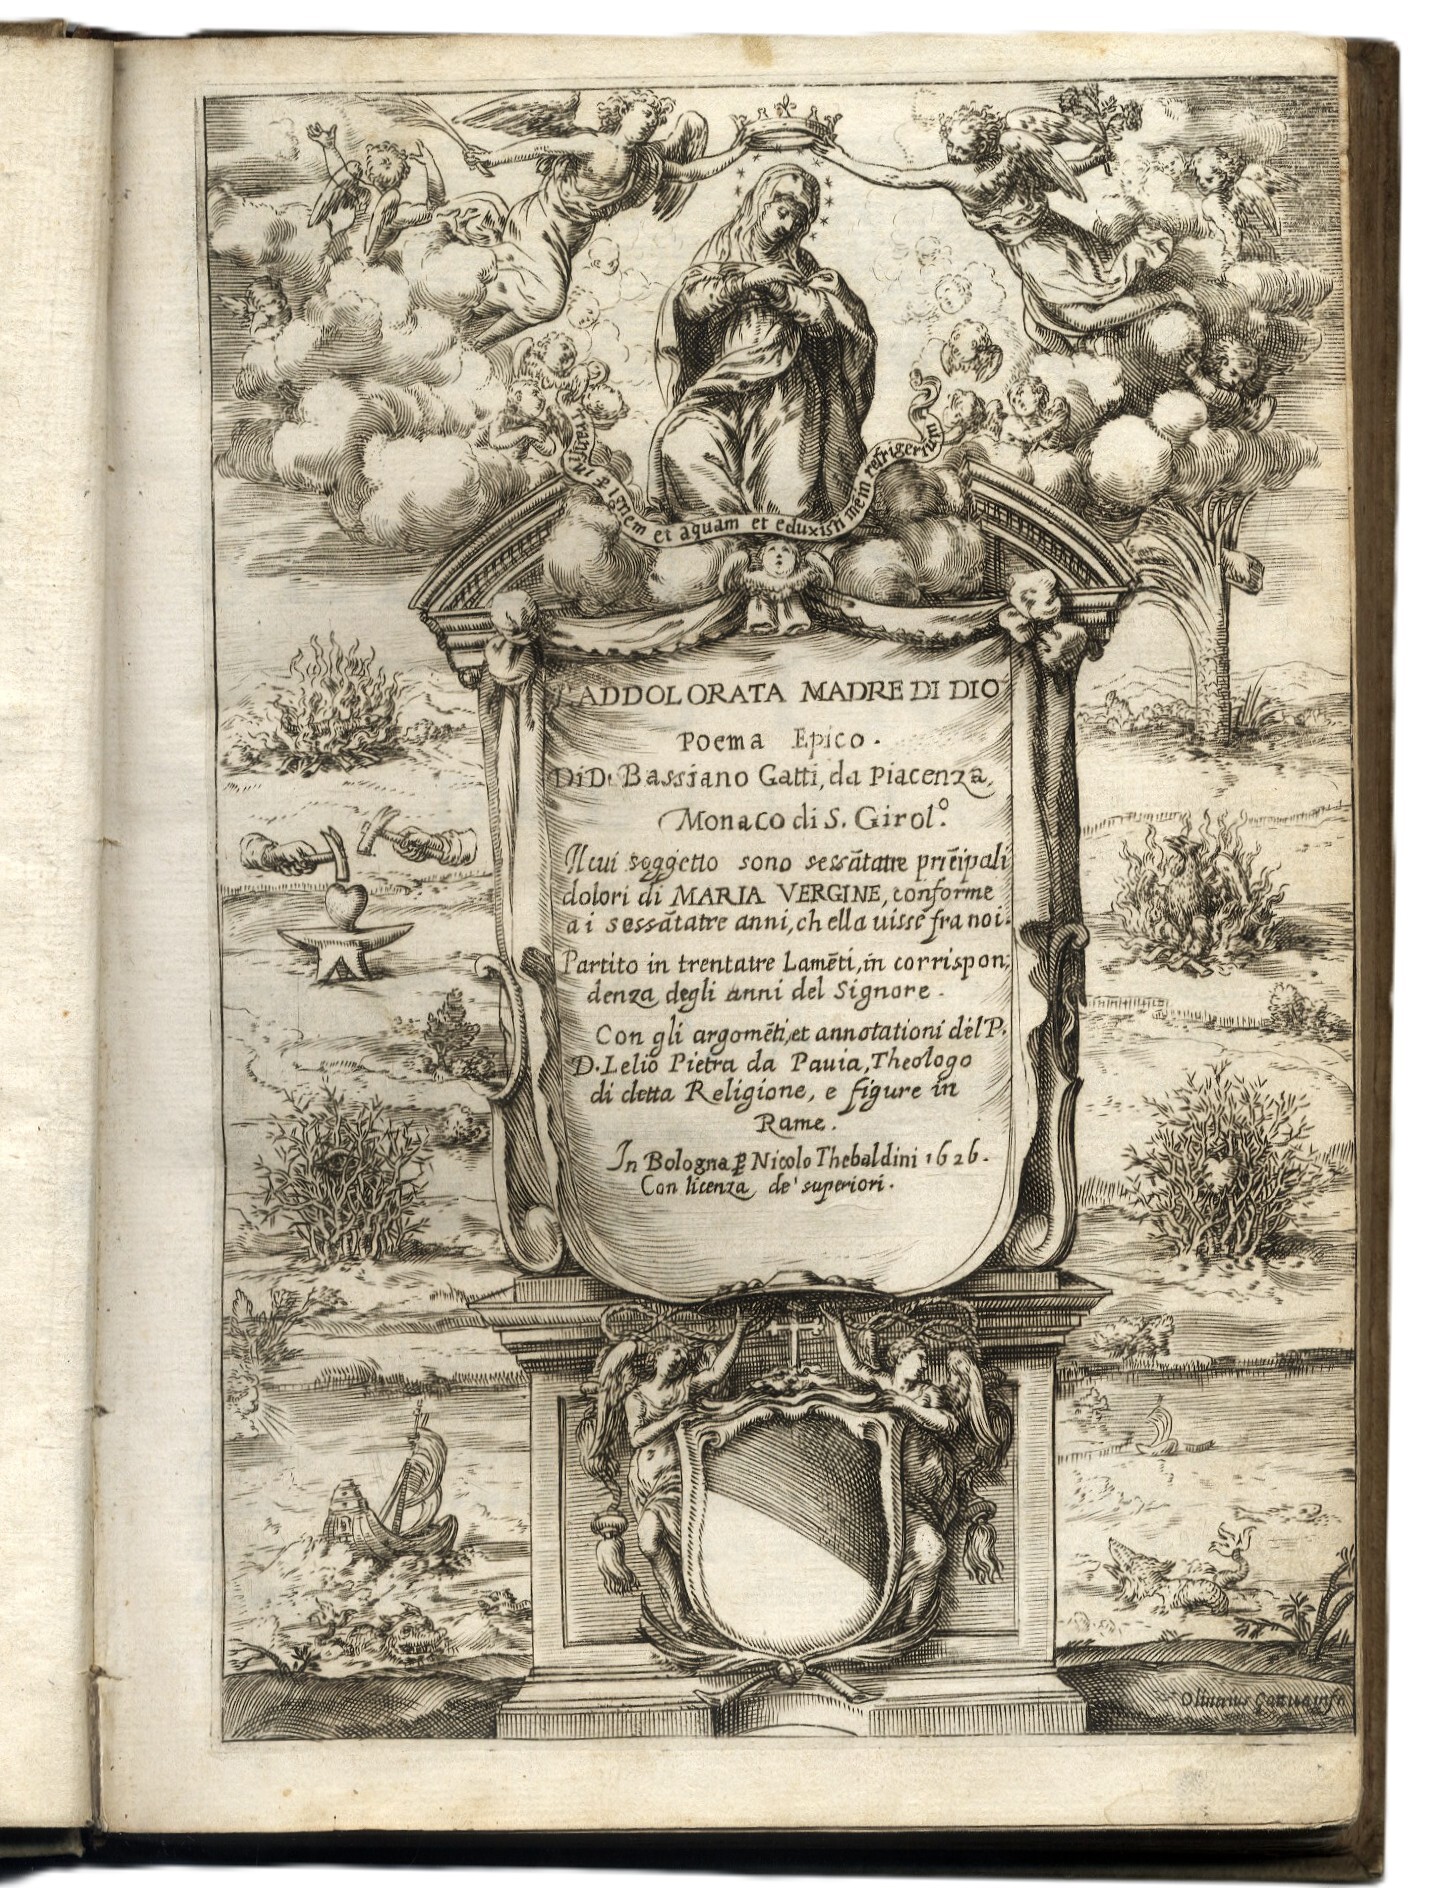 trāsisti ꝑ ignem et aquam et eduxisti mēin refrigerium
L'ADDOLORATA MADRE DI DIO
Poema Epico.
Di D. Bassiano Gatti, da Piacenza,
Monaco di S. Girol.º
Il cui soggetto sono sessātatre prīcipali
dolori di MARIA VERGINE, conforme
a i sessātatre anni, ch ella uisse fra noi.
Partito in trentatre Lamēti, in corrispon,
denza degli anni del Signore.
Con gli argomēti, et annotationi del P.
D. Lelio Pietra da Pauia, Theologo
di detta Religione, e figure in
Rame.
In Bologna ꝑ Nicolo Thebaldini 1626.
Con licenza de' superiori.
Oliuerius Gattus